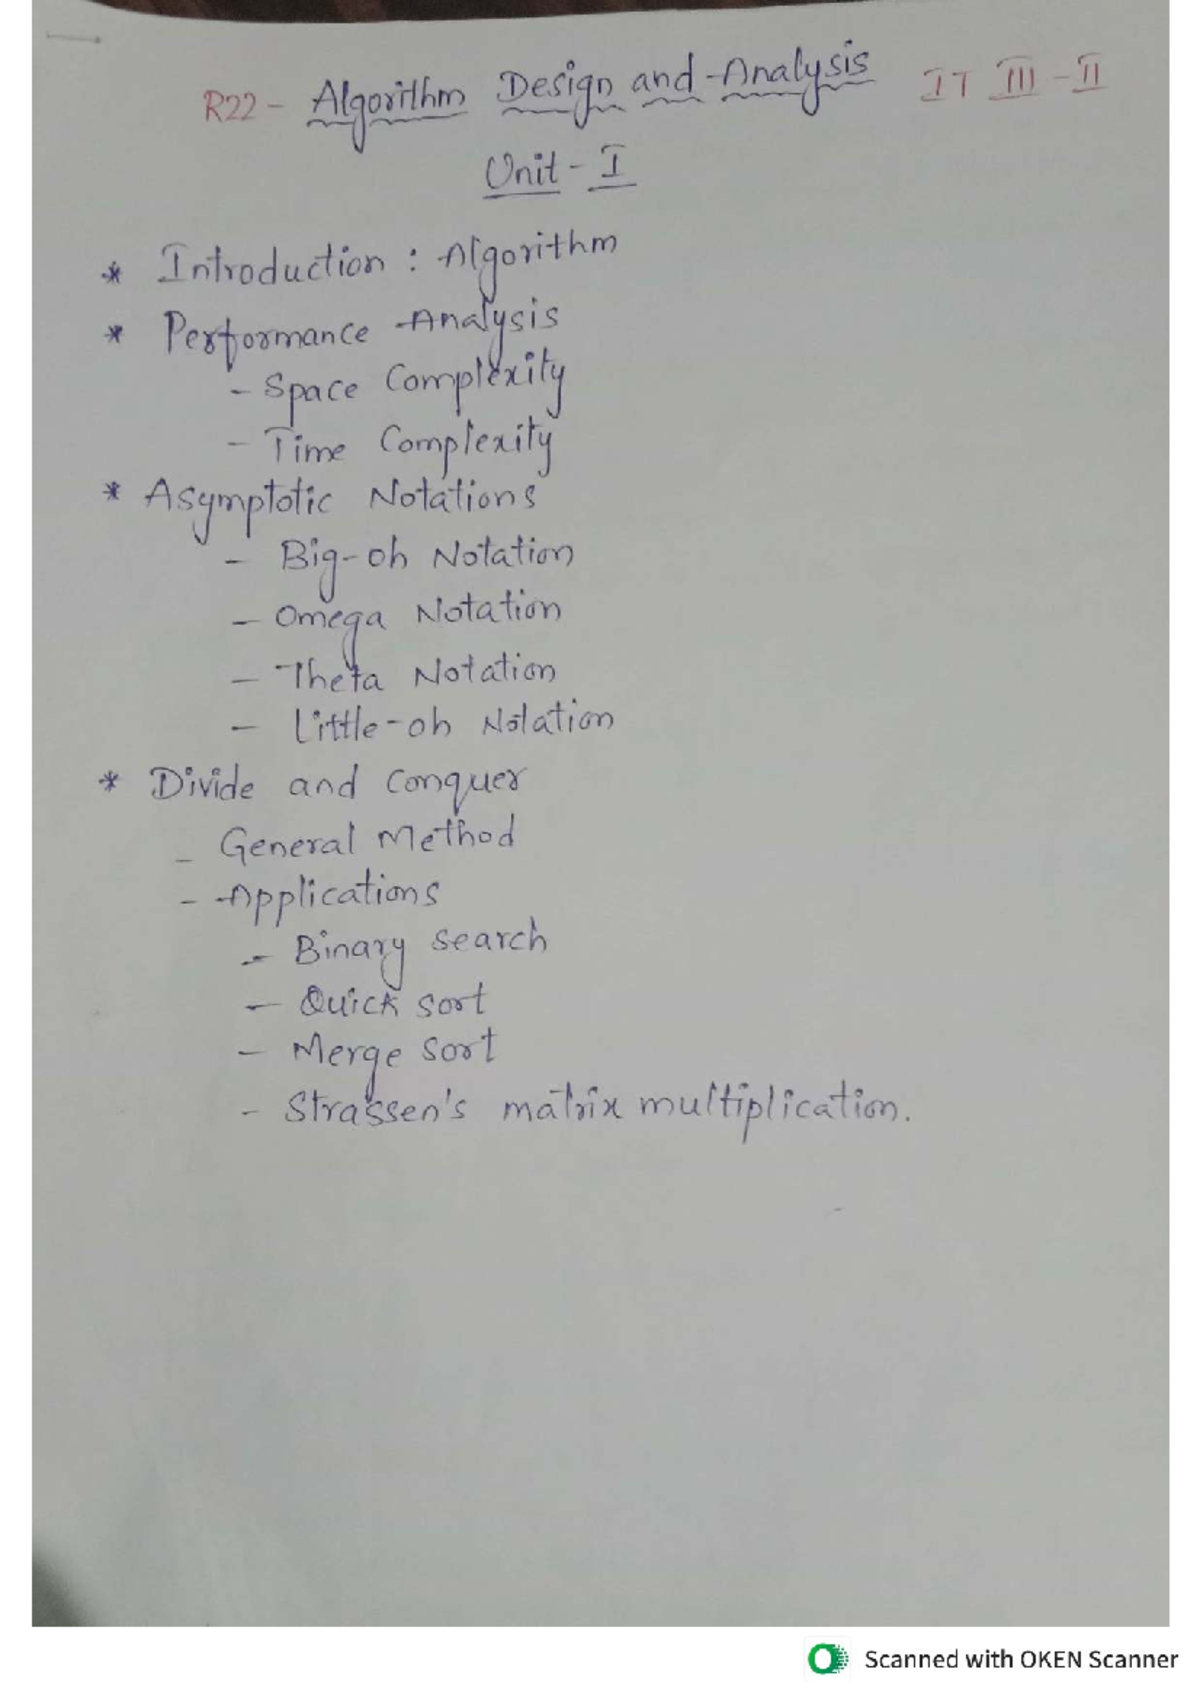 R22 - Algorithm Design and Analysis IT III - II
Unit - I
* Introduction : Algorithm
* Performance Analysis
- Space Complexity
- Time Complexity
* Asymptotic Notations
- Big-oh Notation
- Omega Notation
- Theta Notation
- Little-oh Notation
* Divide and Conquer
- General Method
- Applications
- Binary Search
- Quick sort
- Merge sort
- Strassen's matrix multiplication.
Scanned with OKEN Scanner